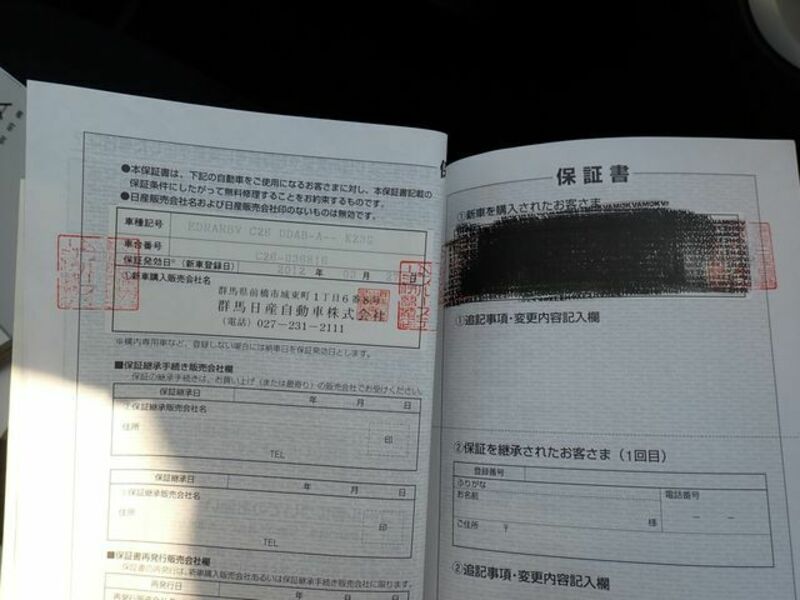 ●本保証書は、下記の自動車をご使用になるお客さまに対し、本保証書記載の
保証条件にしたがって無料修理することをお約束するものです。
●日産販売会社名および日産販売会社印のないものは無効です。
車種記号
C26
車台番号 C26-036816
保証発効日※(新車登録日) 2012 年 03 月 日
①新車購入販売会社名
群馬県前橋市城東町1丁目6番8号
群馬日産自動車株式会社
(電話) 027-231-2111
※構内専用車など、登録しない場合には納車日を保証発効日とします。
■保証継承手続き販売会社欄
保証の継承手続きは、お買い上げ(または最寄り)の販売会社でお受けください。
保証継承日 年 月 日
②保証継承販売会社名
住所
印
TEL
保証継承日 年 月 日
保証継承販売会社名
住所
印
TEL
■保証書再発行販売会社欄
保証書の再発行は、新車購入販売会社あるいは保証継承手続き販売会社に限ります。
再発行日 年 月 日
再発行販売会社名
保証書
①新車を購入されたお客さま
①追記事項・変更内容記入欄
②保証を継承されたお客さま(1回目)
登録番号
ふりがな
お名前
様
電話番号
ご住所 〒
②追記事項・変更内容記入欄